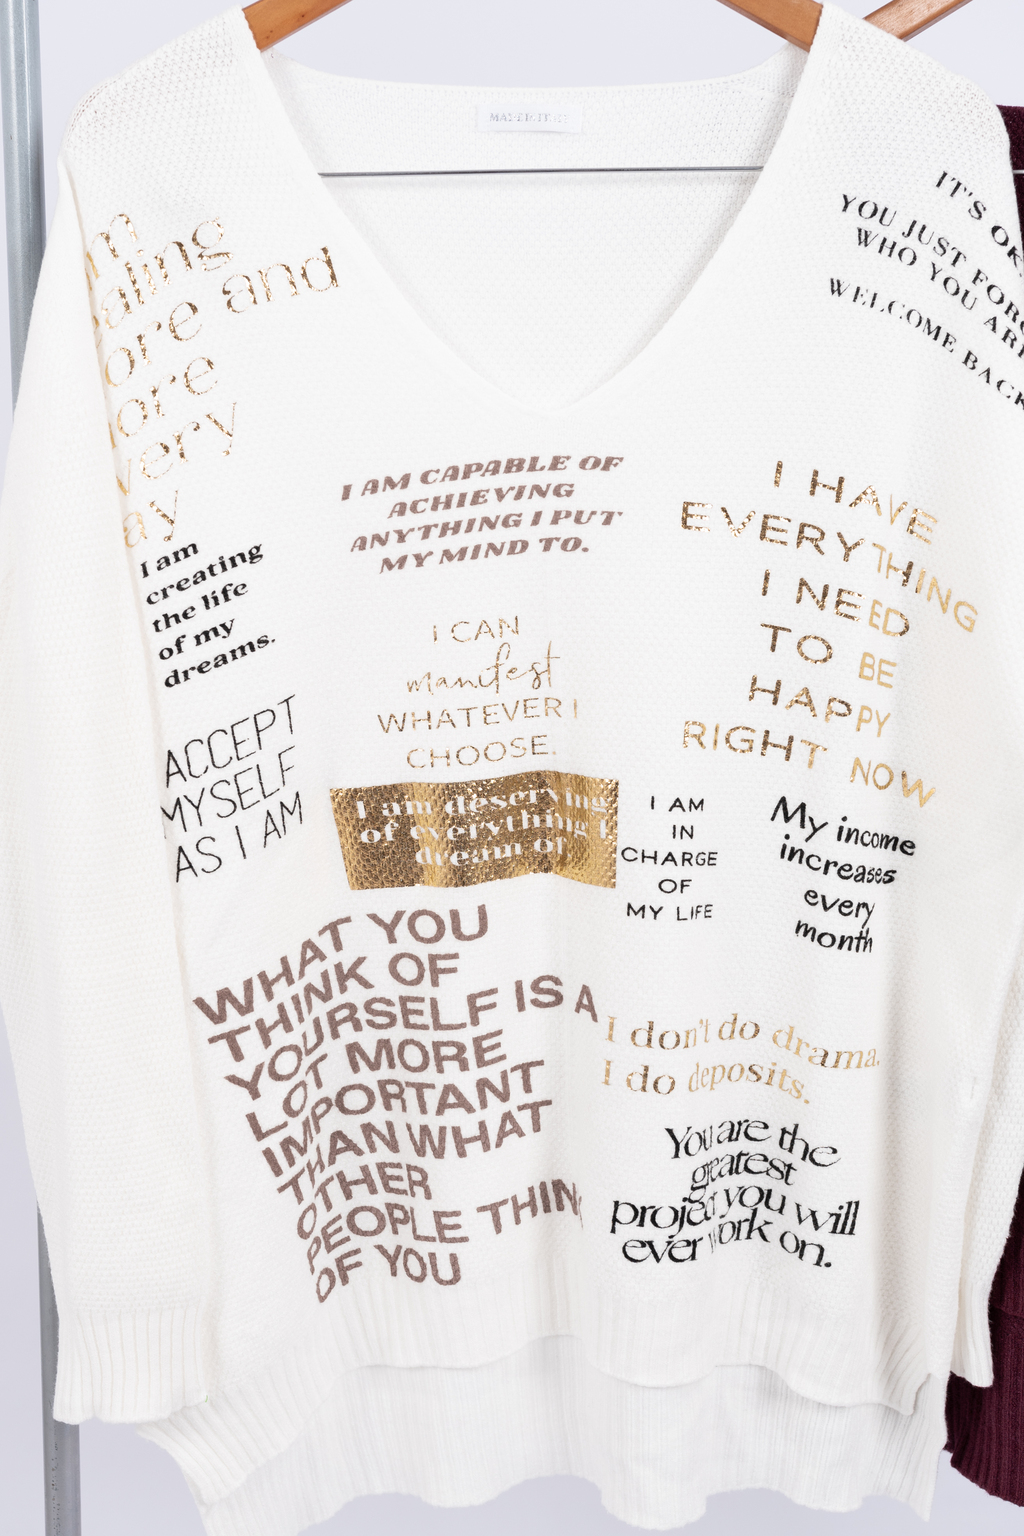 ore and
I am
creating
the life
of my
dreams.
ACCEPT
MYSELF
AS I AM
I AM CAPABLE OF
ACHIEVING
ANYTHING I PUT
MY MIND TO.
I CAN
manifest
WHATEVER I
CHOOSE.
I am deserving
of everything I
dream of
WHAT YOU
THINK OF
YOURSELF IS A
LOT MORE
IMPORTANT
THAN WHAT
OTHER
PEOPLE THIN
OF YOU
IT'S OK
YOU JUST FORG
WHO YOU ARE
WELCOME BACK
I HAVE
EVERYTHING
I NEED
TO BE
HAPPY
RIGHT NOW
I AM
IN
CHARGE
OF
MY LIFE
My income
increases
every
month
I don't do drama.
I do deposits.
You are the
greatest
project you will
ever work on.